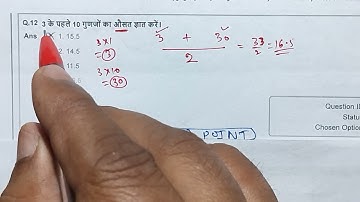 Q.12 3 के पहले 10 गुणजों का औसत ज्ञात करें।
Ans 1. 15.5
2. 14.5
11.5
3×1
= 3
3×10
= 30
3 + 30
2
= 33/2 = 16.5
Question I
Statu
Chosen Optio
POINT)